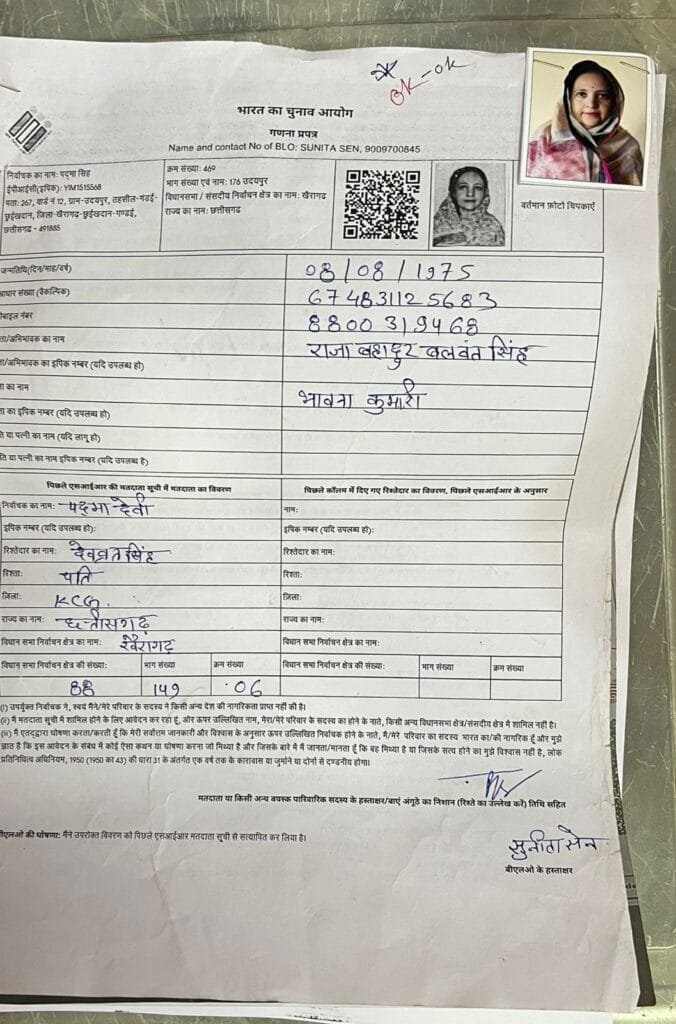 ok-ok
भारत का चुनाव आयोग
गणना प्रपत्र
Name and contact No of BLO: SUNITA SEN, 9009700845
निर्वाचक का नाम: पद्मा सिंह
ईपीआईसी(इपिक): YIM1515568
पता: 267, वार्ड नं 12, ग्राम-उदयपुर, तहसील-गंडई-
छुईखदान, जिला-खैरागढ़-छुईखदान-गण्डई,
छत्तीसगढ़ - 491885
क्रम संख्या: 469
भाग संख्या एवं नाम: 176 उदयपुर
विधानसभा / संसदीय निर्वाचन क्षेत्र का नाम: खैरागढ़
राज्य का नाम: छत्तीसगढ़
वर्तमान फ़ोटो चिपकाएँ
जन्मतिथि(दिन/माह/वर्ष) 08/08/1975
आधार संख्या (वैकल्पिक) 674831125683
मोबाइल नंबर 8800319468
पिता/अभिभावक का नाम राजा बहादुर बलवंत सिंह
पिता/अभिभावक का इपिक नम्बर (यदि उपलब्ध हो)
का नाम भावना कुमारी
का इपिक नम्बर (यदि उपलब्ध हो)
पति या पत्नी का नाम (यदि लागू हो)
पति या पत्नी का नाम इपिक नम्बर (यदि उपलब्ध है)
पिछले एसआईआर की मतदाता सूची में मतदाता का विवरण
पिछले कॉलम में दिए गए रिश्तेदार का विवरण, पिछले एसआईआर के अनुसार
निर्वाचक का नाम: पद्मा देवी नाम:
इपिक नम्बर (यदि उपलब्ध हो): इपिक नम्बर (यदि उपलब्ध हो):
रिश्तेदार का नाम: देवव्रत सिंह रिश्तेदार का नाम:
रिश्ता: पति रिश्ता:
जिला: KCG. ज़िला:
राज्य का नाम: छत्तीसगढ़ राज्य का नाम:
विधान सभा निर्वाचन क्षेत्र का नाम: खैरागढ़ विधान सभा निर्वाचन क्षेत्र का नाम:
विधान सभा निर्वाचन क्षेत्र की संख्या: भाग संख्या क्रम संख्या विधान सभा निर्वाचन क्षेत्र की संख्या: भाग संख्या क्रम संख्या
88 149 06
(i) उपर्युक्त निर्वाचक ने, स्वयं मैंने/मेरे परिवार के सदस्य ने किसी अन्य देश की नागरिकता प्राप्त नहीं की है।
(ii) मैं मतदाता सूची में शामिल होने के लिए आवेदन कर रहा हूँ, और ऊपर उल्लिखित नाम, मेरा/मेरे परिवार के सदस्य का होने के नाते, किसी अन्य विधानसभा क्षेत्र/संसदीय क्षेत्र में शामिल नहीं है।
(iii) मैं एतद्द्वारा घोषणा करता/करती हूँ कि मेरी सर्वोत्तम जानकारी और विश्वास के अनुसार ऊपर उल्लिखित निर्वाचक होने के नाते, मैं/मेरे परिवार का सदस्य भारत का/की नागरिक हूँ और मुझे
ज्ञात है कि इस आवेदन के संबंध में कोई ऐसा कथन या घोषणा करना जो मिथ्या है और जिसके बारे में मैं जानता/मानता हूँ कि वह मिथ्या है या जिसके सत्य होने का मुझे विश्वास नहीं है, लोक
प्रतिनिधित्व अधिनियम, 1950 (1950 का 43) की धारा 31 के अंतर्गत एक वर्ष तक के कारावास या जुर्माने या दोनों से दण्डनीय होगा।
मतदाता या किसी अन्य वयस्क पारिवारिक सदस्य के हस्ताक्षर/बाएं अंगूठे का निशान (रिश्ते का उल्लेख करें) तिथि सहित
बीएलओ की घोषणा: मैंने उपरोक्त विवरण को पिछले एसआईआर मतदाता सूची से सत्यापित कर लिया है।
सुनीता सेन
बीएलओ के हस्ताक्षर